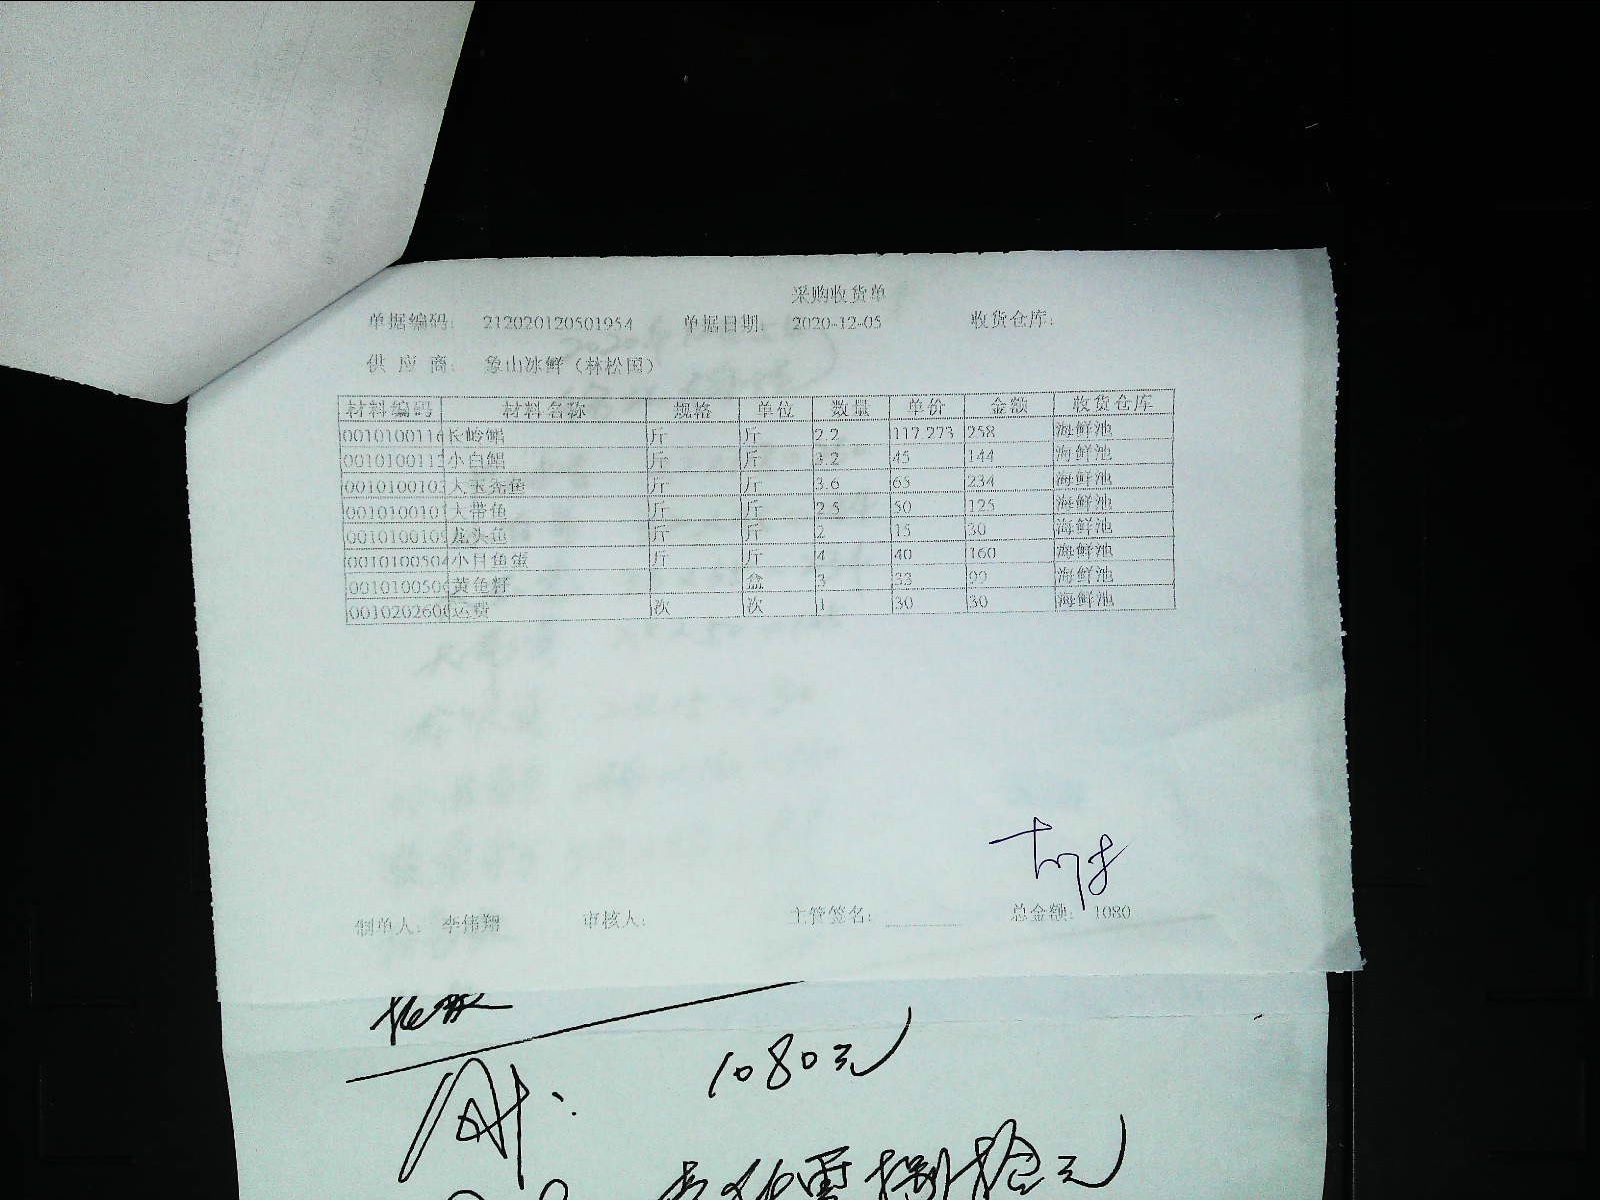 采购收货单
单据编码: 212020120501954 单据日期: 2020-12-05 收货仓库:
供 应 商: 象山冰鲜（林松国）
材料编码 材料名称 规格 单位 数量 单价 金额 收货仓库
0010100116 长岭鲳 斤 斤 2.2 117.273 258 海鲜池
001010011 小白鲳 斤 斤 3.2 45 144 海鲜池
001010010 斤 斤 3.6 65 234 海鲜池
001010010 大带鱼 斤 斤 2.5 50 125 海鲜池
001010010 龙头鱼 斤 斤 2 15 30 海鲜池
001010050 小目鱼蛋 斤 斤 4 40 160 海鲜池
001010050 黄鱼籽 盒 3 33 99 海鲜池
001020260 运费 次 次 1 30 30 海鲜池
制单人: 李伟翔 审核人: 主管签名: 总金额: 1080
1080元